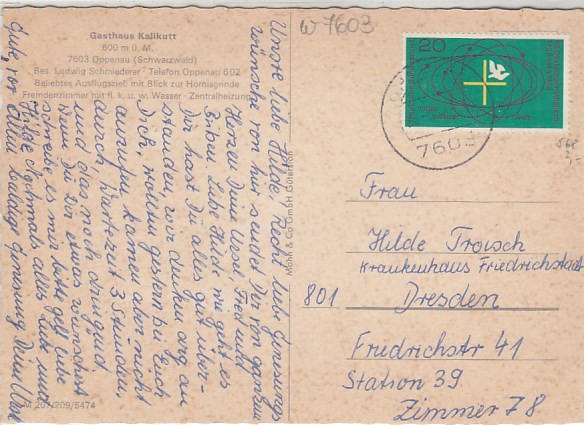 Gasthaus Kalikutt
600 m ü. M.
7603 Oppenau (Schwarzwald)
Bes. Ludwig Schmiederer · Telefon Oppenau 602
Beliebtes Ausflugsziel mit Blick zur Hornisgrinde
Fremdenzimmer mit fl. k. u. w. Wasser · Zentralheizung
Unsre liebe Hilde! Recht liebe Genesungs
wünsche von hir sendet Dir von ganzem
Herzen Deine Ursel, Fred und
Erben. Liebe Hilde, wie geht es
Dir hast Du alles gut über-
standen, wir denken arg an
Dich, wollten gestern bei Euch
anrufen, kamen aber nicht
durch, Wartezeit 3 Stunden,
und das noch dringend
Wenn Du Dir etwas wünschst
schreibe es mir bitte gell liebe
Hilde. Nochmals alles Liebe und
Gute, vor allem baldige Genesung Deine
M 207/209/5474
Mohn & Co GmbH Gütersloh
W 7603
20
7603
Frau
Hilde Troisch
Krankenhaus Friedrichstadt
801 Dresden
Friedrichstr 41
Station 39
Zimmer 78